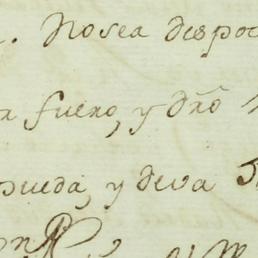 . No sea despo
fuero, y dr̃o
pueda, y deva